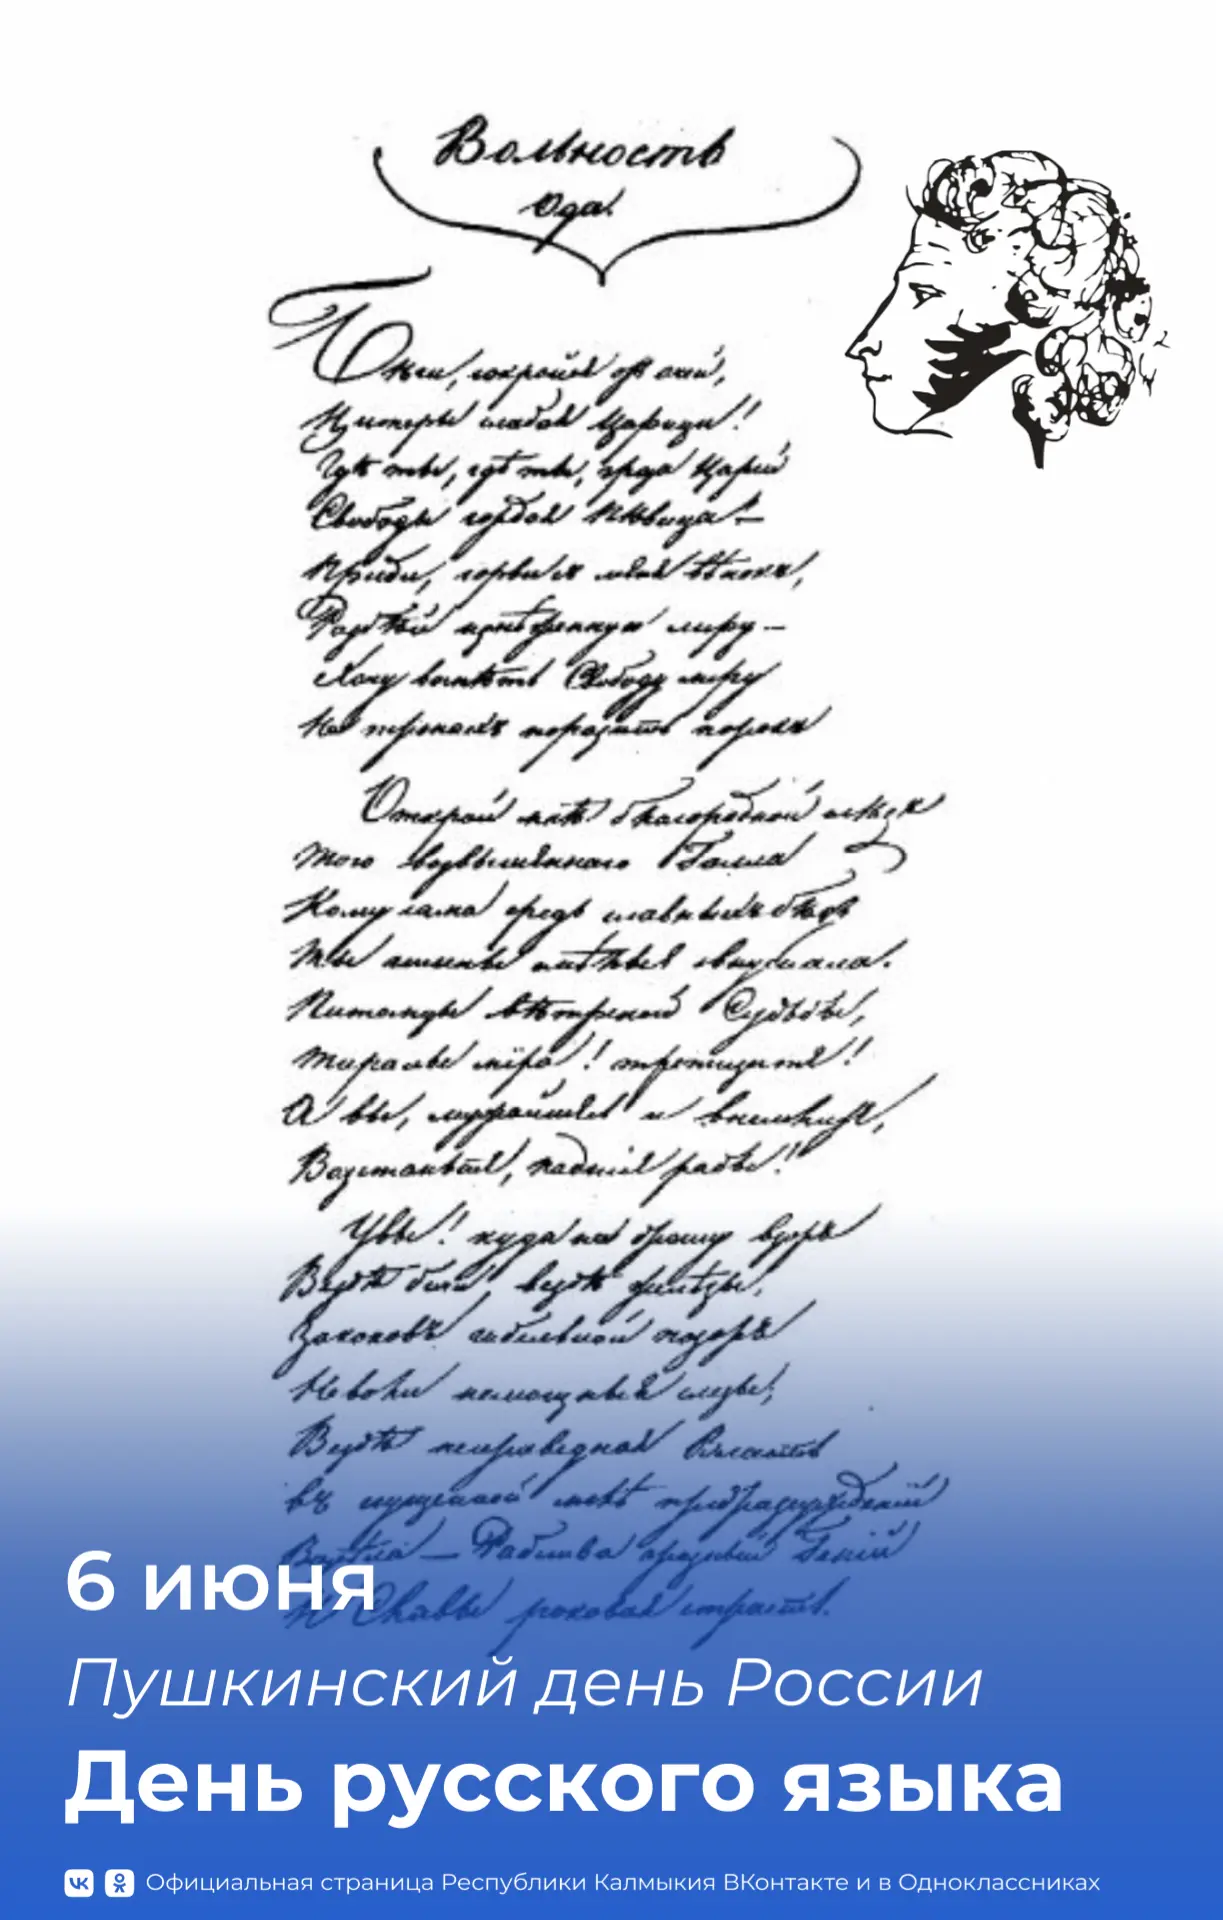 Вольность
Ода.
Бѣги, сокройся отъ очей,
Цитеры слабая Царица!
Гдѣ ты, гдѣ ты, гроза Царей
Свободы гордая пѣвица? —
Приди, сорви съ меня вѣнокъ,
Разбей изнѣженную лиру —
Хочу воспѣть Свободу миру
На тронахъ поразить порокъ
Открой мнѣ благородной слѣдъ
Того возвышеннаго Галла
Кому сама средь славныхъ бѣдъ
Ты гимны смѣлыя внушала.
Питомцы вѣтреной Судьбы,
Тираны міра! трепещите!
А вы, мужайтесь и внемлите,
Возстаньте, падшіе рабы!
Увы! куда ни брошу взоръ
Вездѣ бичи, вездѣ желѣзы,
Законовъ гибельной позоръ
Неволи немощныя слезы;
Вездѣ неправедная Власть
въ сгущенной мглѣ предразсужденій
Возсѣла — Рабства грозный Геній
И Славы роковая страсть.
6 июня
Пушкинский день России
День русского языка
Официальная страница Республики Калмыкия ВКонтакте и в Одноклассниках